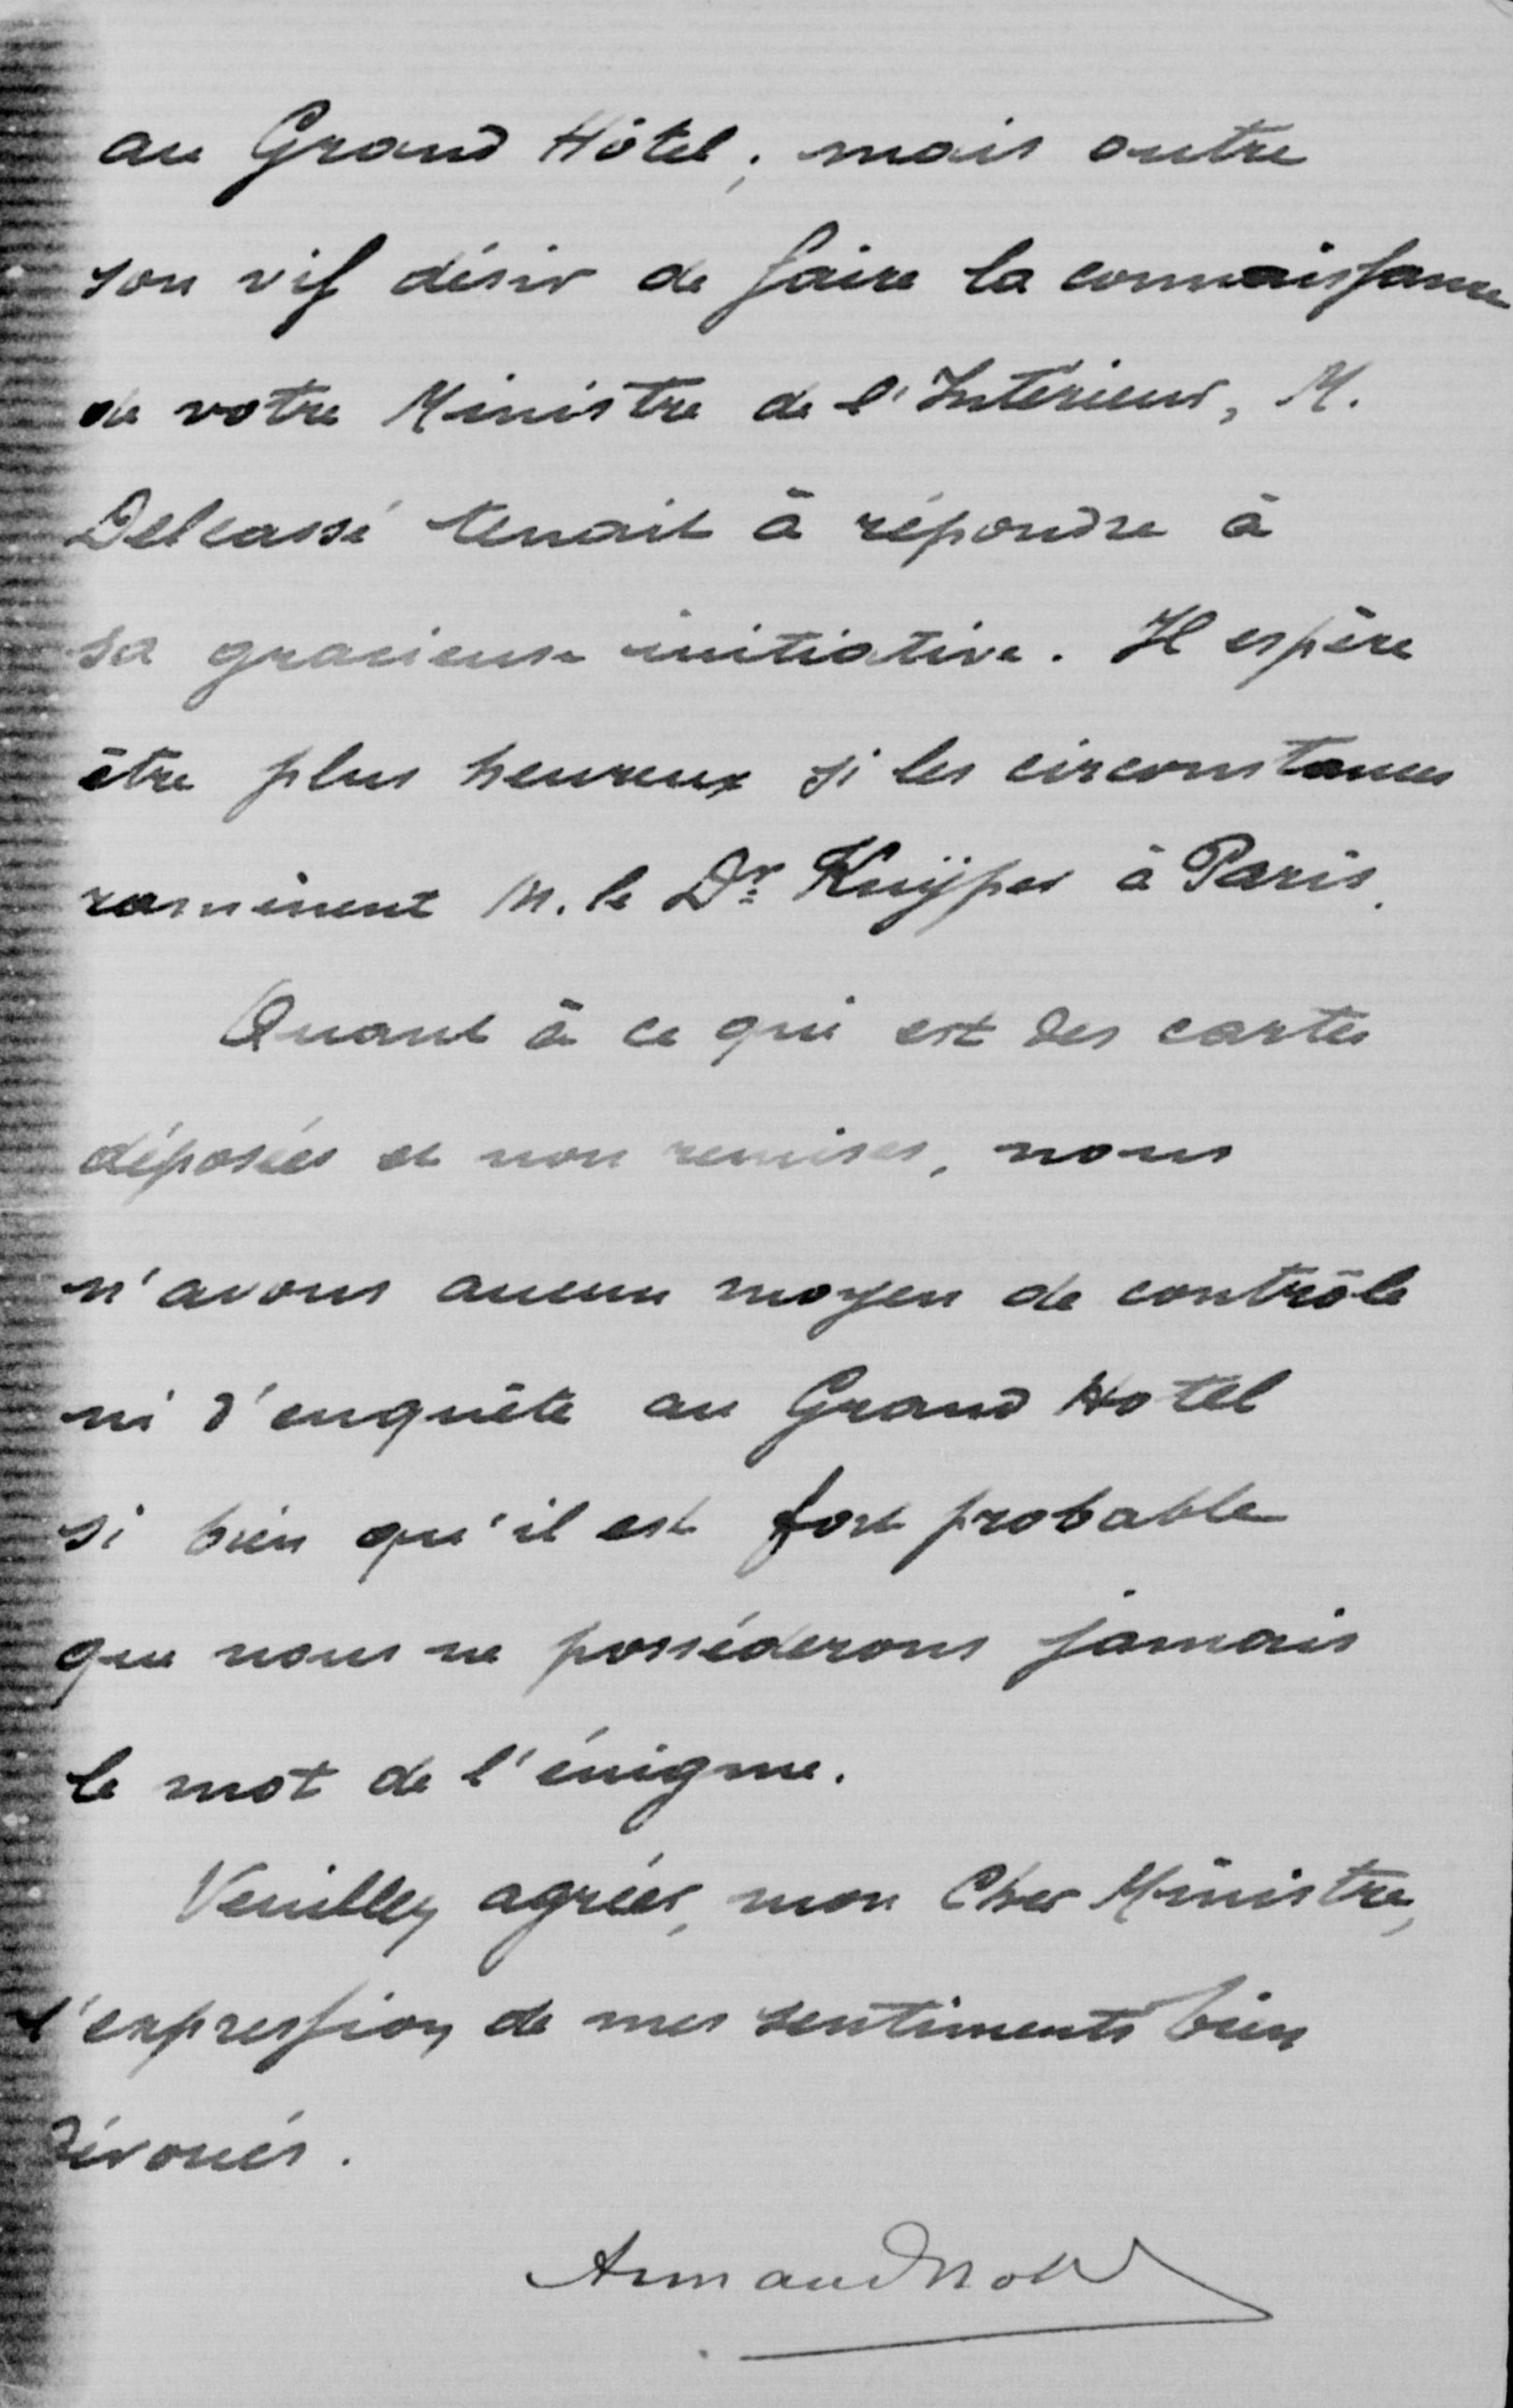 au Grand Hôtel ; mais outre
son vif désir de faire la connaissance
de votre Ministre de l'Intérieur, M.
Delcassé tenait à répondre à
sa gracieuse initiative. Il espère
être plus heureux si les circonstances
ramènent M. le Dr Kuÿper à Paris.
Quant à ce qui est des cartes
déposées et non remises, nous
n'avons aucun moyen de contrôle
ni d'enquête au Grand Hotel
si bien qu'il est fort probable
que nous ne posséderons jamais
le mot de l'énigme.
Veuillez agréer, mon Cher Ministre,
l'expression de mes sentiments bien
dévoués.
Armand